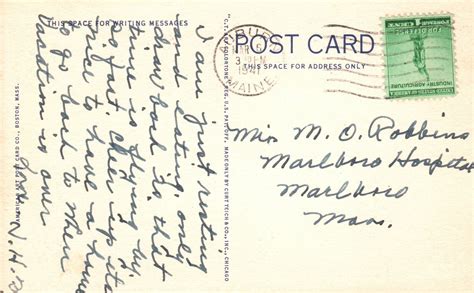 THIS SPACE FOR WRITING MESSAGES
I am just resting
and eating. only
draw back is that
time is flying by
so fast. Cheer up its
nice to have a home
to go back to when
vacation is over
N.H.
AMERICAN ART POST CARD CO., BOSTON, MASS.
"C.T. ART-COLORTONE" REG. U.S. PAT. OFF. MADE ONLY BY CURT TEICH & CO., INC., CHICAGO
POST CARD
THIS SPACE FOR ADDRESS ONLY
AUBURN
1941
MAINE
1 CENT 1
INDUSTRY AGRICULTURE
FOR DEFENSE
UNITED STATES OF AMERICA
Miss M. O. Robbins
Marlboro Hospital
Marlboro
Mass.